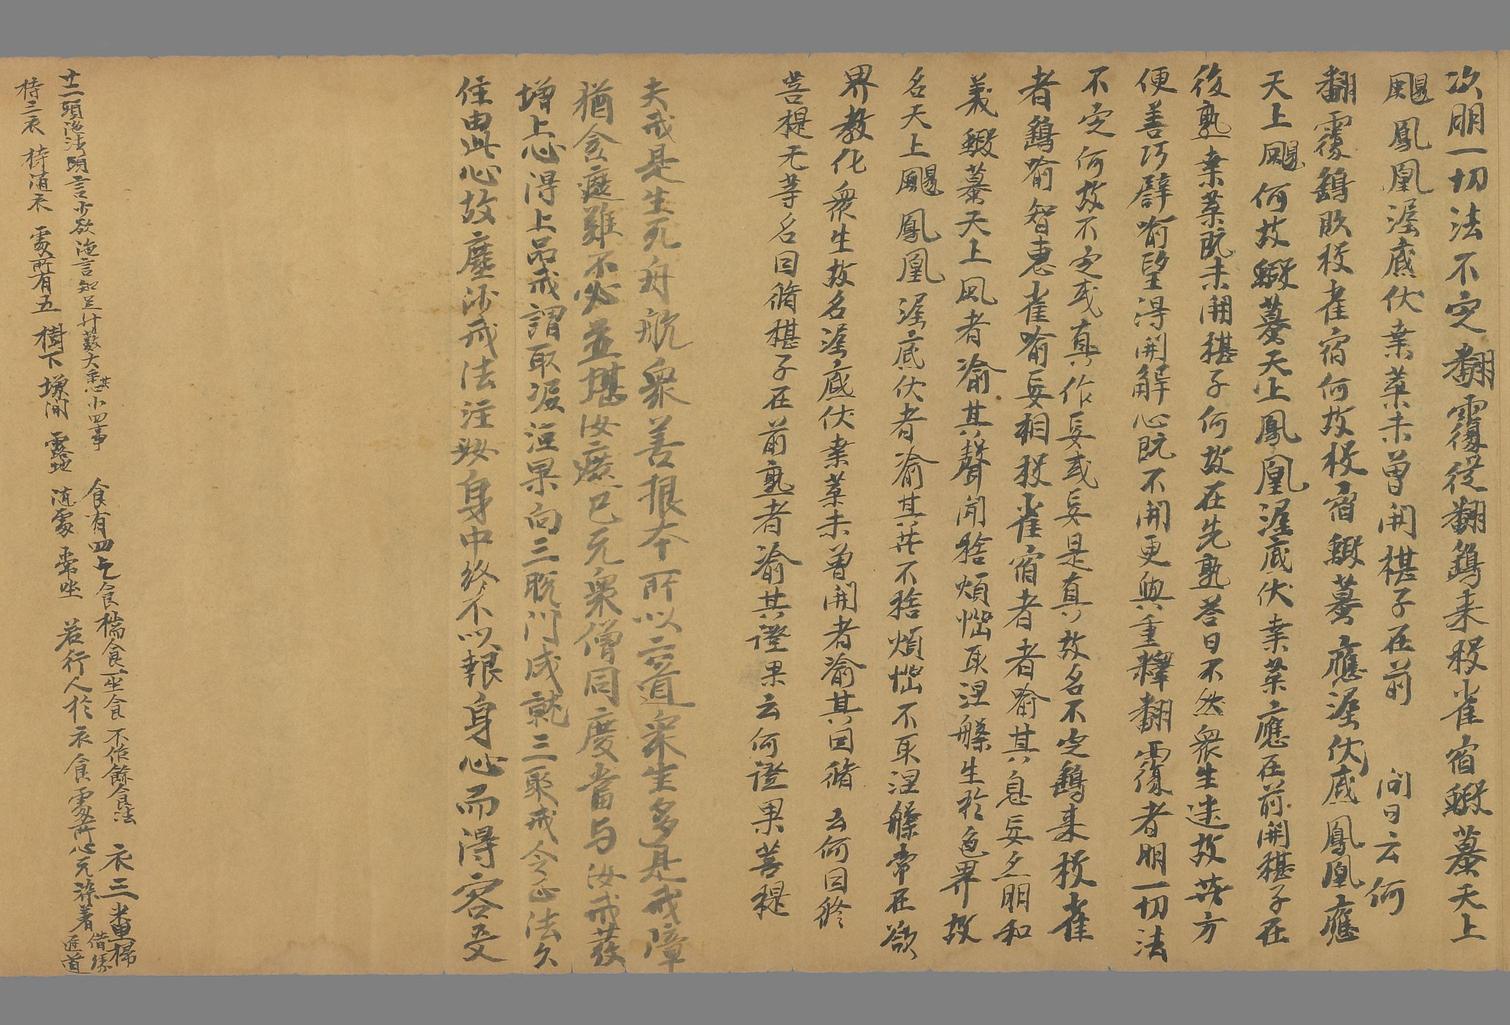 次明一切法不定翻覆從翻鷄來投雀宿蝦蟇天上
颺鳳凰渥底伏葉菓未曾開椹子在前 問曰云何
翻覆鷄欧投雀宿何故投宿蝦蟇應渥伏底鳳凰應
天上颺何故蝦蟇天上鳳凰渥底伏葉菓應在前開椹子在
後熟葉菓既未開椹子何故在先熟荅曰不然衆生迷故共方
便善巧辟喻望得開解心既不開更與重釋翻覆者明一切法
不定何故不定或真作妄或妄是真故名不定鷄來投雀
者鷄喻智惠雀喻妄相投雀宿者者喻其息妄之明和
義蝦蟇天上風者喻其聲聞捨煩惱取涅槃生於色界故
名天上颺鳳凰渥底伏者喻其菩不捨煩惱不取涅槃常在欲
界教化衆生故名渥底伏葉菓未曾開者喻其因脩 云何因終
菩提无等名因脩椹子在前熟者喻其證果云何證果菩提
夫戒是生死舟航衆善根本所以六道衆生多是戒障
猶貪遮難不必並堪汝庶已无衆僧同慶當与汝戒茲
增上心得上品戒謂取涅洹果向三脫門成就三聚戒令正法久
住由此心故塵沙戒法注汝身中終不以報身心而得容受
十二頭陁法頭言少欲陁言知足 廾蔽大悲其小四事 食有四乞食揣食一坐食 不作餘食法 衣三糞掃
持三衣 持浦衣 處所有五 樹下 塚間 露地 隨處 常坐 若行人於衣食處所心无染着 借緣進道